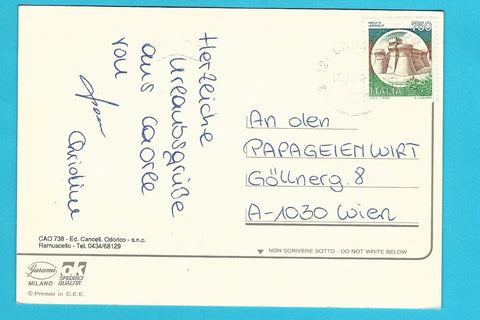 Herzliche
Urlaubsgrüße
aus Caorle
von
Christine
750
ITALIA
An den
PAPAGEIENWIRT
Göllnerg. 8
A-1030 Wien
CAO 738 - Ed. Cancell. Odorico - s.n.c.
Ramuscello - Tel. 0434/68129
NON SCRIVERE SOTTO - DO NOT WRITE BELOW
Garami
MILANO
OK
SPEDISCI
QUALITA'
© Printed in C.E.E.